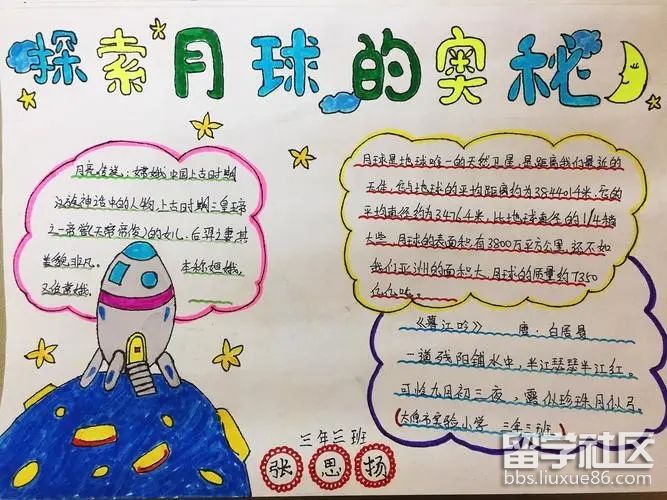 探索月球的奥秘
月亮传说，嫦娥中国上古时期
汉族神话中的人物，上古时期三皇五帝
之一帝喾(天帝帝俊)的女儿，后羿之妻其
美貌非凡。 本称姮娥，
又作常娥。
月球是地球唯一的天然卫星，是距离我们最近的
天体，它与地球的平均距离约为384401千米，它的
平均直径约为3476千米，比地球直径的1/4稍
大些，月球的表面积有3800万平方公里，还不如
我们亚洲的面积大，月球的质量约7350
亿亿吨。
《暮江吟》 唐·白居易
一道残阳铺水中，半江瑟瑟半江红。
可怜九月初三夜，露似珍珠月似弓。
市实验小学 三年三班
三年三班
张思扬
留学社区
bbs.liuxue86.com